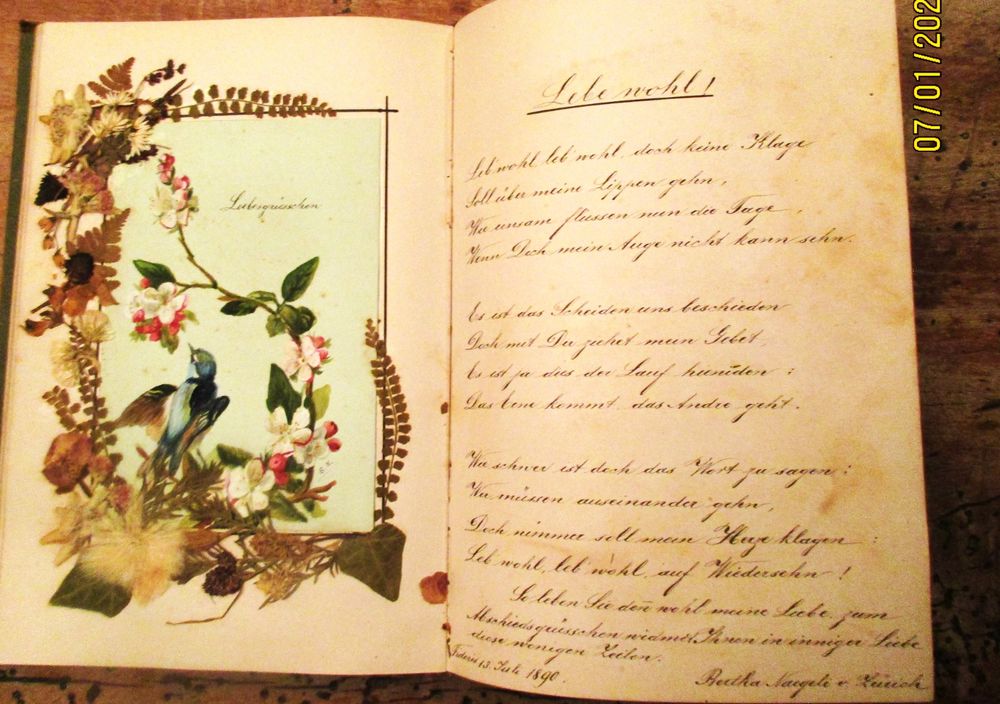 Liebesgrüsschen
Lebe wohl!
Leb wohl, leb wohl, doch keine Klage
Soll über meine Lippen gehn,
Wie einsam flüssen nun die Tage,
Wenn Dich mein Auge nicht kann sehn.
Es ist das Scheiden uns beschieden
Doch mit Dir ziehet mein Gebet,
Es ist ja dies der Lauf hieniden:
Das Eine kommt, das Andre geht.
Wie schwer ist doch das Wort zu sagen:
Wir müssen auseinander gehn,
Doch nimmer soll mein Herze klagen:
Leb wohl, leb wohl, auf Wiedersehn!
So leben Sie deñ wohl meine Liebe, zum
Abschiedsgrüsschen widmet Ihnen in inniger Liebe
diese wenigen Zeilen.
13. Juli 1890.
Bertha Naegeli v. Zürich
07/01/202